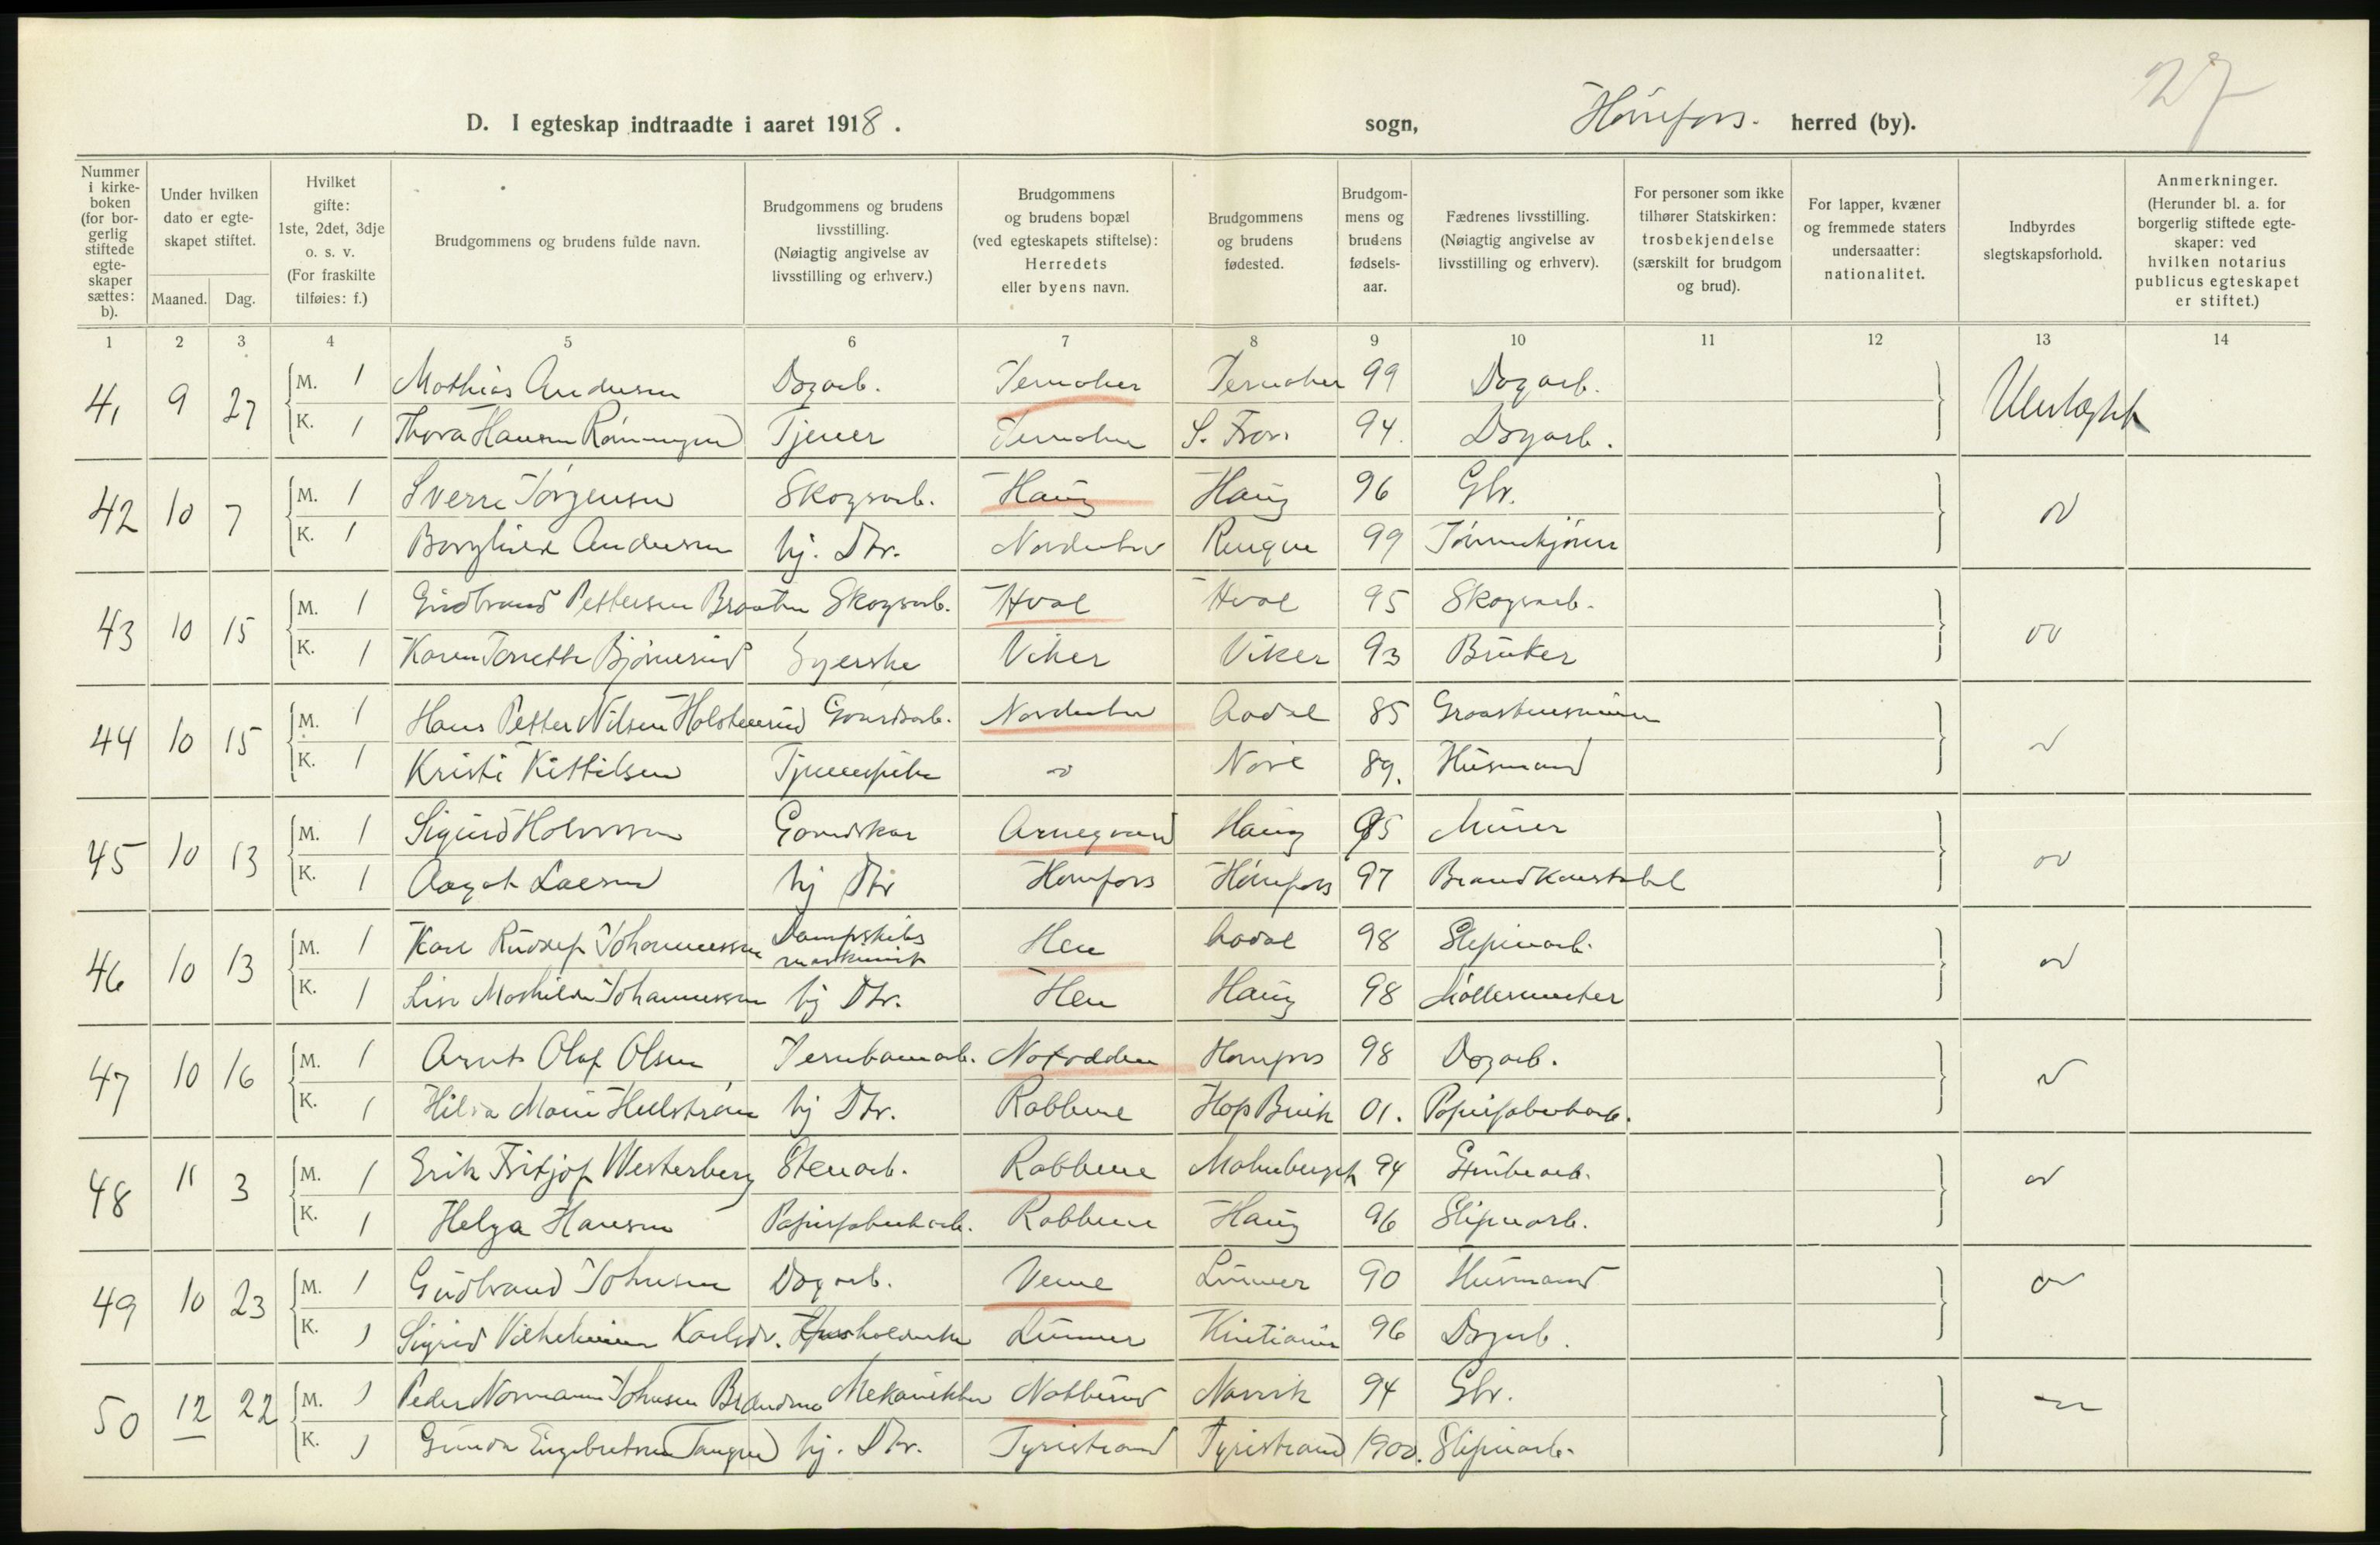 27
D. I egteskap indtraadte i aaret 1918. sogn, Hønefoss. herred (by).
Nummer i kirkeboken (for borgerlig stiftede egteskaper sættes: b).
Under hvilken dato er egteskapet stiftet.
Maaned. Dag.
Hvilket gifte: 1ste, 2det, 3dje o. s. v. (For fraskilte tilføies: f.)
Brudgommens og brudens fulde navn.
Brudgommens og brudens livsstilling. (Nøiagtig angivelse av livsstilling og erhverv.)
Brudgommens og brudens bopæl (ved egteskapets stiftelse): Herredets eller byens navn.
Brudgommens og brudens fødested.
Brudgommens og brudens fødselsaar.
Fædrenes livsstilling. (Nøiagtig angivelse av livsstilling og erhverv).
For personer som ikke tilhører Statskirken: trosbekjendelse (særskilt for brudgom og brud).
For lapper, kvæner og fremmede staters undersaatter: nationalitet.
Indbyrdes slegtskapsforhold.
Anmerkninger. (Herunder bl. a. for borgerlig stiftede egteskaper: ved hvilken notarius publicus egteskapet er stiftet.)
1 2 3 4 5 6 7 8 9 10 11 12 13 14
41 9 27 M. 1 Mathias Andersen Dagarb. Jevnaker Jevnaker 99 Dagarb. Ubeslægtet
K. 1 Thora Hansen Rønningen Tjener Jevnaker S. Fron 94. Dagarb.
42 10 7 M. 1 Sverre Jørgensen Skogsarb. Haug Haug 96 Gbr.
K. 1 Borghild Andersen hj. Dtr. Norderhov 99
43 10 15 M. 1 Gudbrand Pettersen Braaten Skogsarb. Hval Hval 95 Skogsarb.
K. 1 Karen Syerske Viker Viker 93 Bruker
44 10 15 M. 1 Hans Petter Nilsen Gaardsarb. Norderhov Aadal 85
K. 1 Kristi Kittilsen Tjenestepike Nore 89. Husmand
45 10 13 M. 1 Sigurd Gaardskar Haug 95 Murer
K. 1 Aagot Larsen hj Dtr Hønefoss Hønefoss 97 Brandkonstabel
46 10 13 M. 1 Karl Rudolf Johannessen Dampskibs maskinist Hen Aadal 98 Sliperiarb.
K. 1 Lise Mathilde Johannessen hj Dtr. Hen Haug 98 Møllermester
47 10 16 M. 1 Arnt Olaf Olsen Jernbanearb. Notodden Hønefoss 98 Dagarb.
K. 1 Hilda Marie Hellstrøm hj Dtr. Rabbene Hop Bruk 01. Papirfabrikarb.
48 11 3 M. 1 Erik Fritjof Westerberg Stenarb. Rabbene Malmberget 94 Grubearb.
K. 1 Helga Hansen Papirfabrikarb. Rabbene Haug 96 Sliperiarb.
49 10 23 M. 1 Gudbrand Johnsen Dagarb. Veme Lunner 90 Husmand
K. 1 Sigrid Vilhelmine Karlsdr. Husholderske Lunner Kristiania 96 Dagarb.
50 12 22 M. 1 Peder Normann Johnsen Mekaniker Nakkerud Narvik 94 Gbr.
K. 1 Gunda Engebretsen Tangen hj. Dtr. Tyristrand Tyristrand 1900. Sliperiarb.